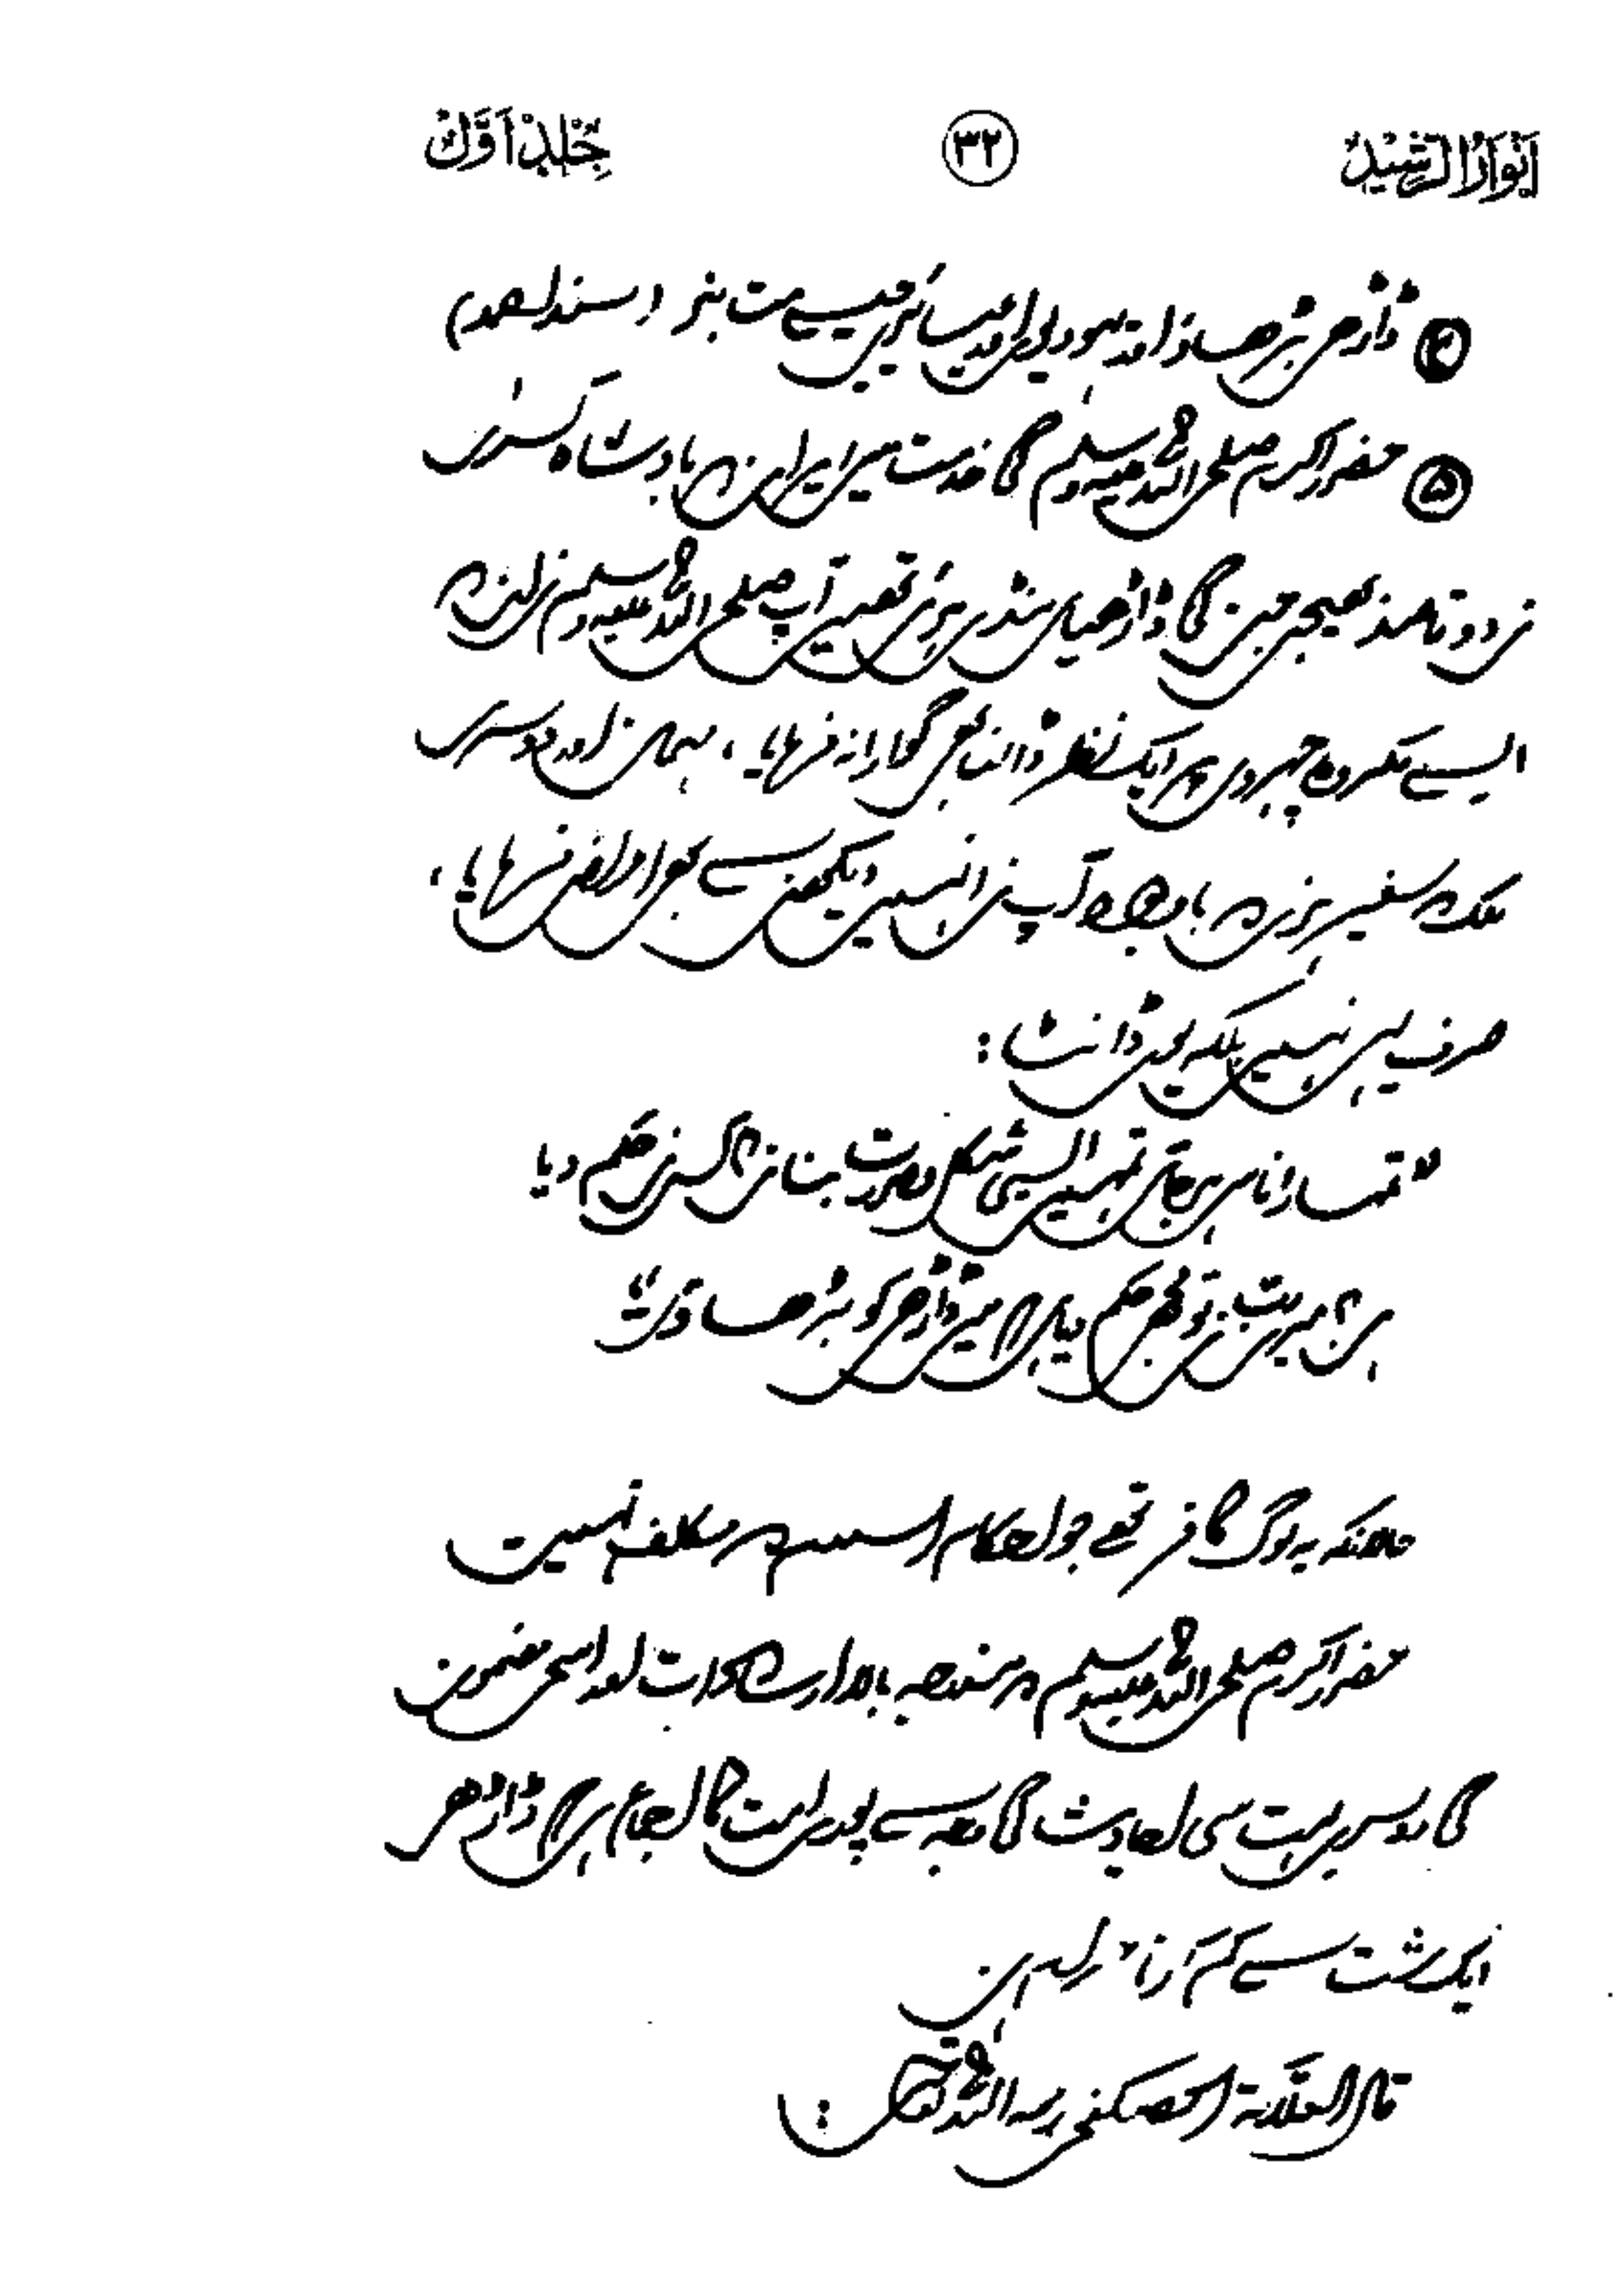 انوار الرشید ۳۲ جلد اول
④ ڈاڑھی بڑھاؤ اور یہودیوں اور عیسائیوں جیسے مت بنو (مسند احمد)
⑤ حضور اکرم صلی اللہ علیہ وسلم کی خدمت میں ایران کے بادشاہ کسریٰ
نے دو قاصد بھیجے جن کی ڈاڑھیاں منڈی ہوئی تھیں آپ صلی اللہ علیہ وسلم نے ان کے
ایسے مکروہ چہروں پر ایک نظر ڈالنا بھی گوارا نہ فرمایا، مہمان اور دوسرے
ملک کے سفیر ہونے کے باوجود آپ نے انہیں دیکھنے سے بھی اعراض فرمایا،
صرف یہی نہیں بلکہ یوں ڈانٹا:
"تمہارا ناس ہو جائے تمہیں ایسی شکل و صورت بنانے کا کس نے حکم دیا
ہے؟ میرے رب نے تو مجھے حکم دیا ہے کہ میں ڈاڑھی کو بڑھاؤں"
حالانکہ یہ لوگ کافر تھے جو احکام اسلام کے مکلف نہیں۔
حضور اکرم صلی اللہ علیہ وسلم کے مندرجہ بالا ارشادات اور اسی مضمون
کی دوسری بہت سی احادیث کی وجہ سے پوری امت کا اجماع ہے کہ ڈاڑھی
ایک مشت سے کم کرنا حرام ہے۔
قال العلامة الحصکفی رحمہ اللہ تعالیٰ: